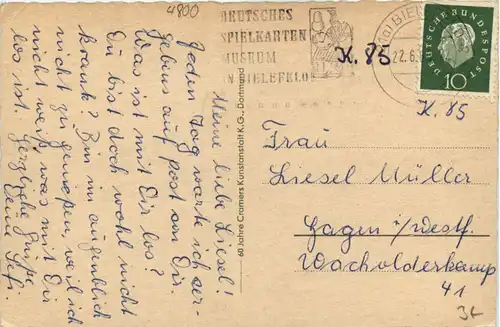 4800
DEUTSCHES
SPIELKARTEN
MUSEUM
IN BIELEFELD
BIEL
22.6.
DEUTSCHE BUNDESPOST
10
K. 85
K. 85
Meine liebe Liesel!
Jeden Tag warte ich ver-
gebens auf post von Dir.
Was ist mit Dir los?
Du bist doch wohl nicht
krank? Bin im augenblick
nicht zu geniesen, weil ich
nicht weiß was mit Dir
los ist. Herzliche Grüße
Deine
60 Jahre Cramers Kunstanstalt K.G., Dortmund
Frau
Liesel Müller
Hagen i/Westf.
Wacholderkamp
41